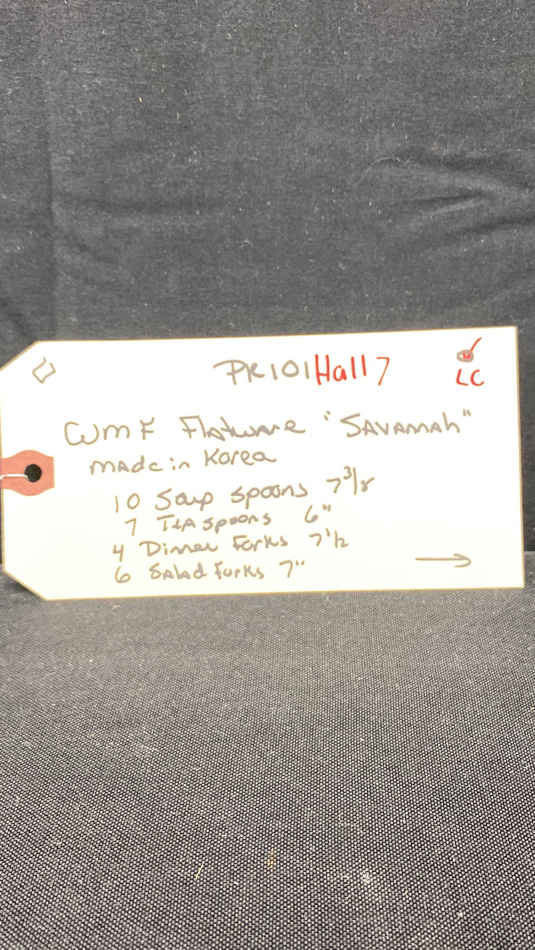 PK101 Hall 7
LC
WMF Flatware "SAVANNAh"
MAde in Korea
10 Soup Spoons 7 3/8
7 TEASpoons 6"
4 Dinner Forks 7 1/2
6 SAlad Forks 7"